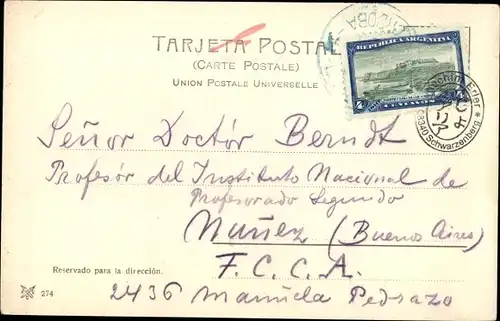 CORDOBA
TARJETA POSTAL
(CARTE POSTALE)
UNION POSTALE UNIVERSELLE
REPUBLICA ARGENTINA
4 CENTAVOS 4
Joachim Erler
* 08340 Schwarzenberg *
Señor Doctór Berndt
Profesór del Instituto Nacional de
Profesorado Segundo
Nuñez (Buenos Aires)
F.C.C.A.
Reservado para la dirección.
274
2436 Manuela Pedrazo